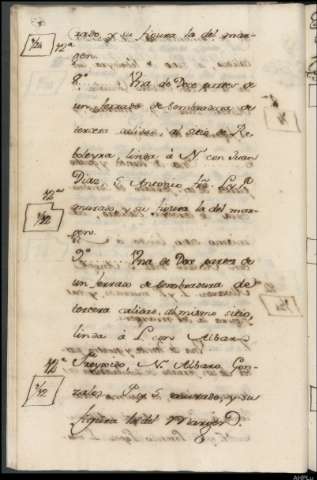 rado, y su figura la del mar-
gen.
8º Una de Doze partes de
un ferrado de sembradura de
tercera calidad, al sitio de Re
boleyra, linda à N. con Juan
Diaz S. Antonio
murado, y su figura la del mar-
gen.
9º Una de Doze partes de
un ferrado de sembradura de
tercera calidad, al mismo sitio,
linda à L. con Albaro
N. Albaro Gon-
zalez murado, y su
figura la del Margen D.
1/12
1/12
AHPLu